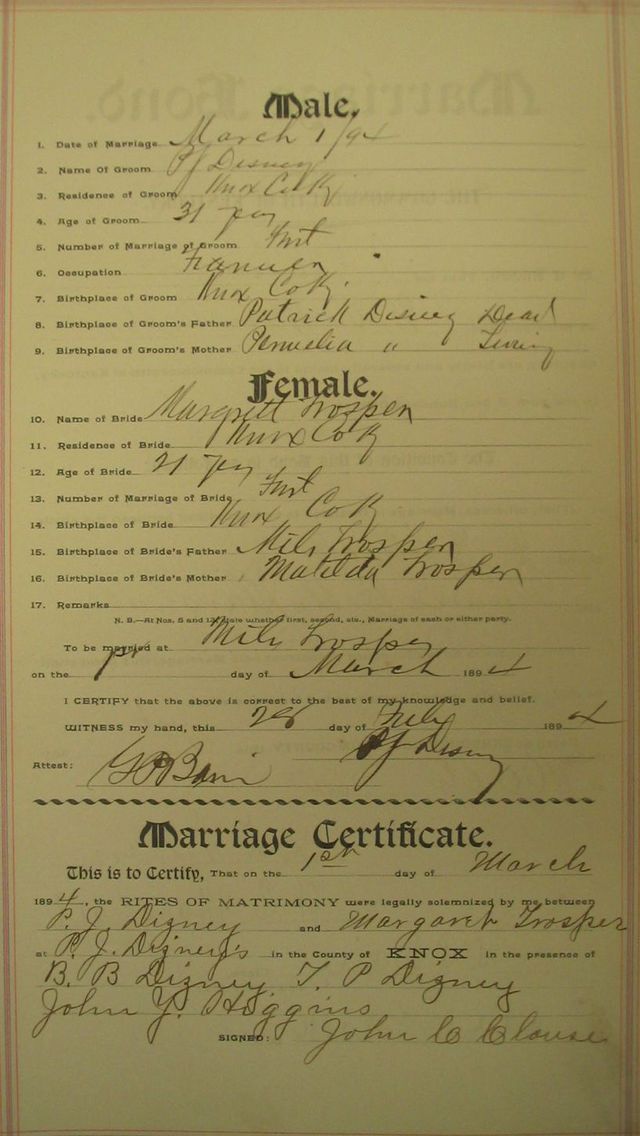 Male.
1. Date of Marriage March 1/94
2. Name Of Groom PJ Disney
3. Residence of Groom Knox Co Ky
4. Age of Groom 31 yrs
5. Number of Marriage of Groom First
6. Occupation Farmer
7. Birthplace of Groom Knox Co Ky.
8. Birthplace of Groom's Father Patrick Disney Dead
9. Birthplace of Groom's Mother Permelia " Living
Female.
10. Name of Bride Margrett Trosper
11. Residence of Bride Knox Co Ky
12. Age of Bride 21 yrs
13. Number of Marriage of Bride First
14. Birthplace of Bride Knox Co Ky
15. Birthplace of Bride's Father Mils Trosper
16. Birthplace of Bride's Mother Matilda Trosper
17. Remarks
N. B.—At Nos. 5 and 12, state whether first, second, etc., Marriage of each or either party.
To be married at Mils Trosper
on the 1st day of March 1894
I CERTIFY that the above is correct to the best of my knowledge and belief.
WITNESS my hand, this 28 day of Feby 1894
PJ Disney
Attest:
Marriage Certificate.
This is to Certify, That on the 1st day of March
1894, the RITES OF MATRIMONY were legally solemnized by me between
P. J. Digney and Margaret Trosper
at P. J. Digney's in the County of KNOX in the presence of
B. B Digney T. P Digney
John Y. Hoggins
SIGNED: John C Clouse